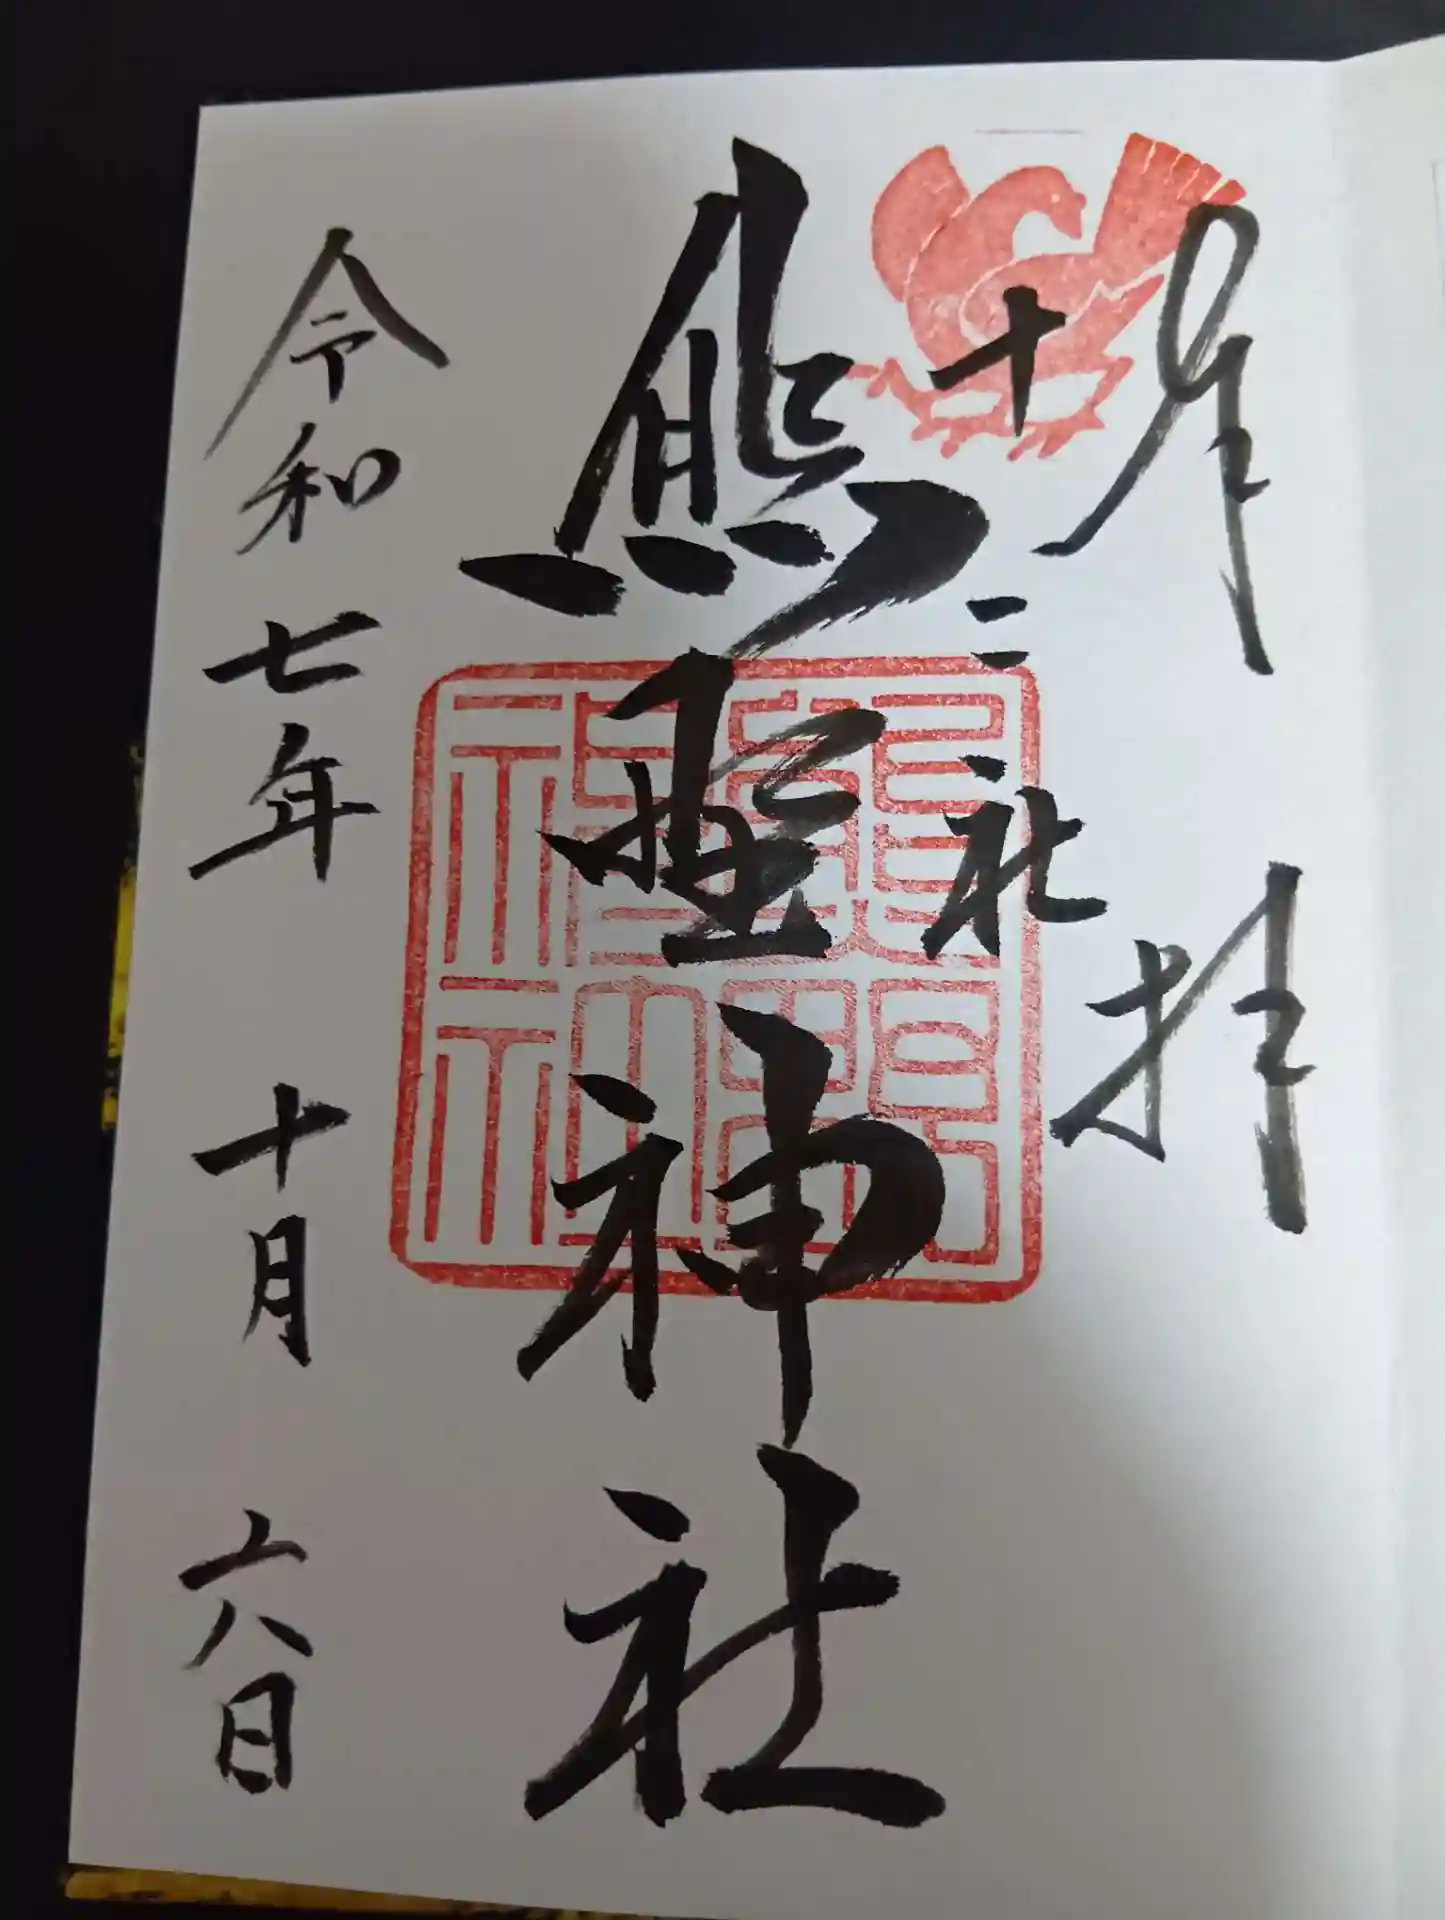 奉拝
十二社
熊野神社
令和七年十月六日